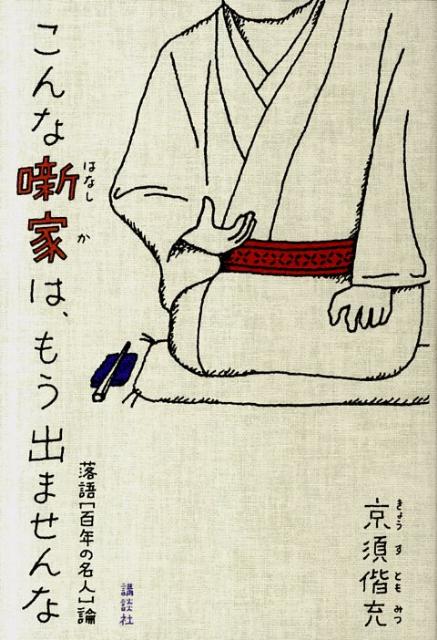 こんな噺家は、もう出ませんな
はなし か
落語[百年の名人]論
講談社
京須偕充
きょう す とも みつ